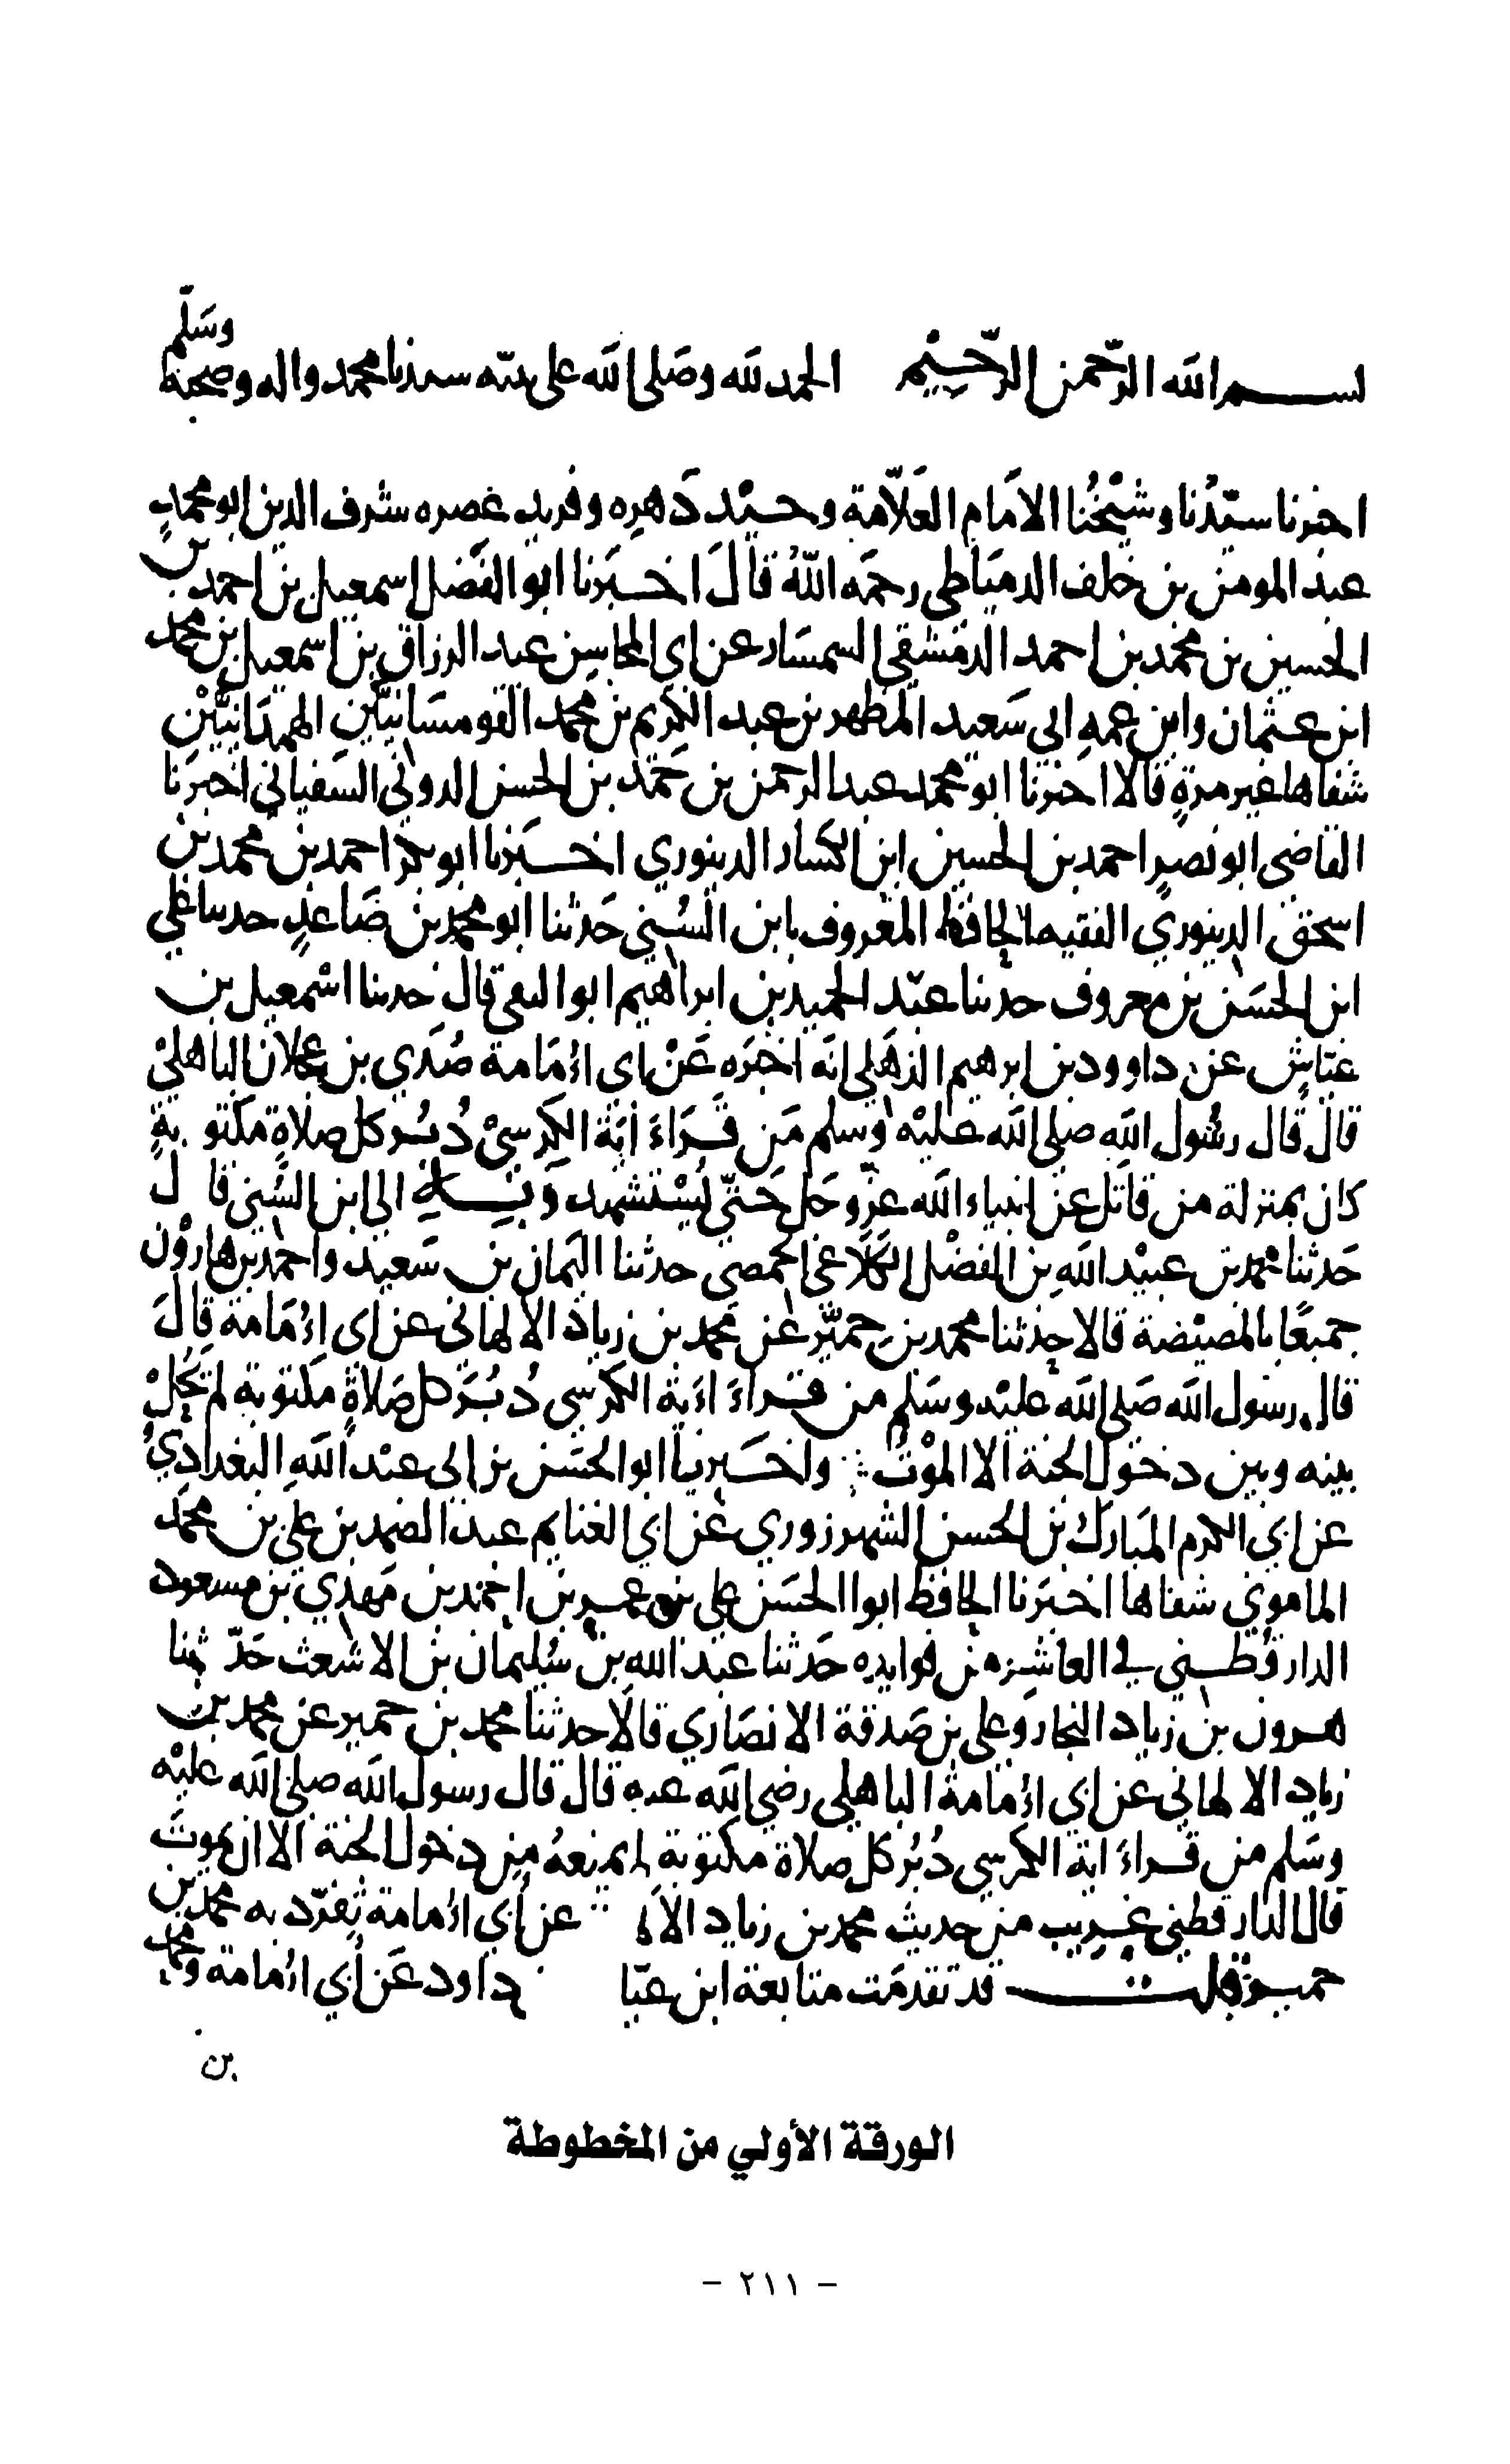 بسم الله الرحمن الرحيم الحمد لله وصلى الله على نبيه سيدنا محمد واله وصحبه وسلم
اخبرنا سيدنا وشيخنا الامام العلامة وحيد دهره وفريد عصره شرف الدين ابو محمد
عبد المومن بن خلف الدمياطي رحمه الله قال اخبرنا ابو الفضل اسمعيل بن احمد بن
الحسين بن محمد بن احمد الدمشقي السمسار عن ابي المحاسن عبد الرزاق بن اسمعيل بن محمد
ابن عثمان وابن عمه ابي سعيد المطهر بن عبد الكريم بن محمد القومسانيين الهمدانيين
شفاها غير مرة قالا اخبرنا ابو محمد عبد الرحمن بن حمد بن الحسن الدوني السفياني اخبرنا
القاضي ابو نصر احمد بن الحسين ابن الكسار الدينوري اخبرنا ابو بكر احمد بن محمد بن
اسحق الدينوري الفقيه الحافظ المعروف بابن السني حدثنا ابو محمد بن صاعد حدثنا علي
ابن الحسن بن معروف حدثنا عبد الحميد بن ابراهيم ابو التقي قال حدثنا اسمعيل بن
عياش عن داوود بن ابرهيم الذهلي انه اخبره عن ابي اُمامة صُدَي بن عجلان الباهلي
قال قال رسول الله صلى الله عليه وسلم من قراءَ اية الكرسي دُبُر كل صلاة مكتوبة
كان بمنزلة من قاتل عن انبياء الله عز وجل حتى يستشهد وبه الى ابن السني قال
حدثنا محمد بن عبيد الله بن الفضل الكلاعي الحمصي حدثنا اليمان بن سعيد واحمد بن هارون
جميعًا بالمصيصة قالا حدثنا محمد بن حمير عن محمد بن زياد الالهاني عن ابي اُمامة قال
قال رسول الله صلى الله عليه وسلم من قراءَ اءية الكرسي دُبُر كل صلاة مكتوبة لم يحُلْ
بينه وبين دخول الجنة الا الموت ∴ واخبرنا ابو الحسن بن ابي عبد الله البغدادي
عن ابي الكرم المبارك بن الحسن الشهرزوري عن ابي الغنايم عبد الصمد بن علي بن محمد
الماموني شفاها اخبرنا الحافظ ابوا الحسن علي بن عمر بن احمد بن مهدي بن مسعود
الدارقطني في العاشرة من فوايده حدثنا عبد الله بن سليمان بن الاشعث حدثنا
هرون بن زياد النجار وعلي بن صدقة الانصاري قالا حدثنا محمد بن حمير عن محمد بن
زياد الالهاني عن ابي اُمامة الباهلي رضي الله عنه قال قال رسول الله صلى الله عليه
وسلم من قراءَ اية الكرسي دُبُر كل صلاة مكتوبة لم يمنعهُ من دخول الجنة الا ان يموت
قال الدارقطني غريب من حديث محمد بن زياد عن ابي اُمامة تفرّد به محمد بن
حمير قلت قد تقدمت متابعة ابن داود عن أبي اُمامة ومحمد
بن
الورقة الأولي من المخطوطة
- ٢١١ -